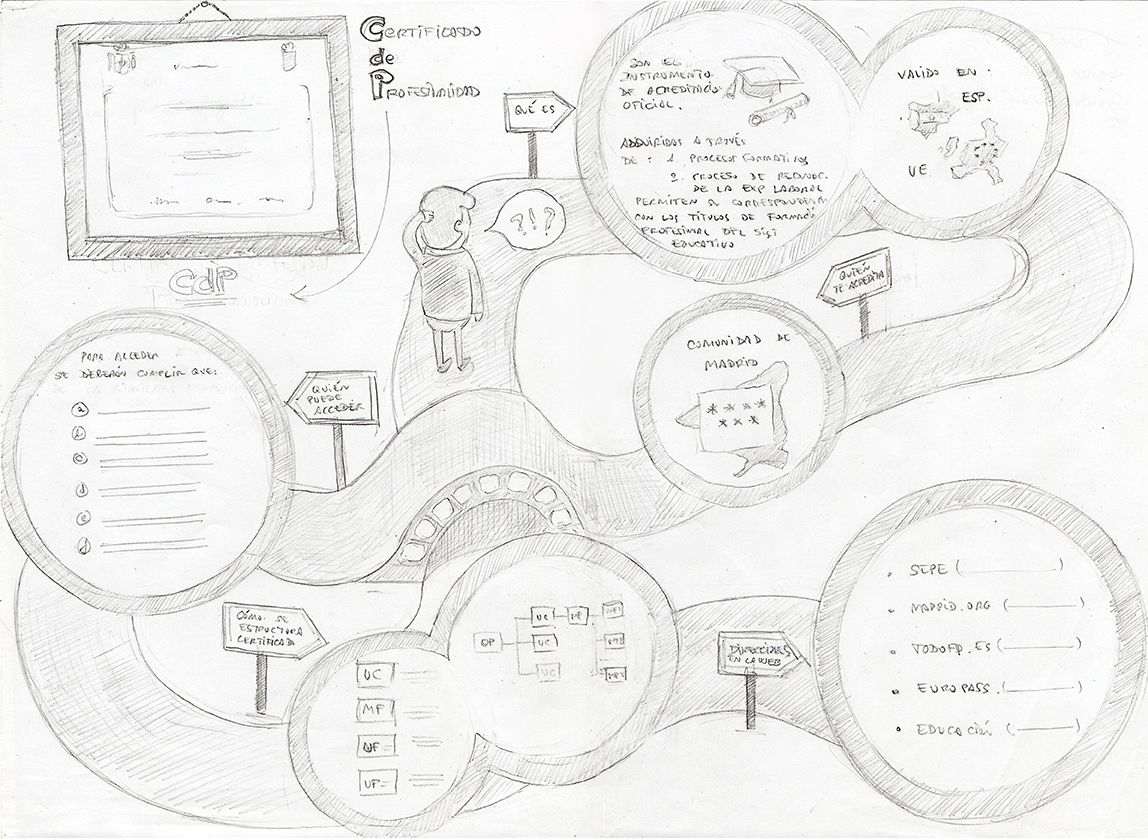 Certificado
de
Profesionalidad
CdP
QUÉ ES
SON EL
INSTRUMENTO
DE ACREDITACIÓ
OFICIAL.
ADQUIRIDAS A TRAVÉS
DE: 1. PROCESOS FORMATIVOS
2. PROCESO DE RECONOC.
DE LA EXP LABORAL
PERMITEN LA CORRESPONDENCIA
CON LOS TÍTULOS DE FORMACIÓ
PROFESIONAL DEL SIST
EDUCATIVO
VALIDO EN:
ESP.
UE.
?!?
QUIÉN
TE ACREDITA
COMUNIDAD DE
MADRID
QUIÉN
PUEDE
ACCEDER
PARA ACCEDER
SE DEBERÁN CUMPLIR QUE:
a
b
c
d
e
CÓMO SE
ESTRUCTURA
CERTIFICADO
UC
MF
UF
UP
QP
UC
MF
UC
UC
DIRECCIONES
EN LA WEB
• SEPE ( )
• MADRID.ORG ( )
• TODOFP.ES ( )
• EUROPASS. ( )
• EDUCACIÓN ( )